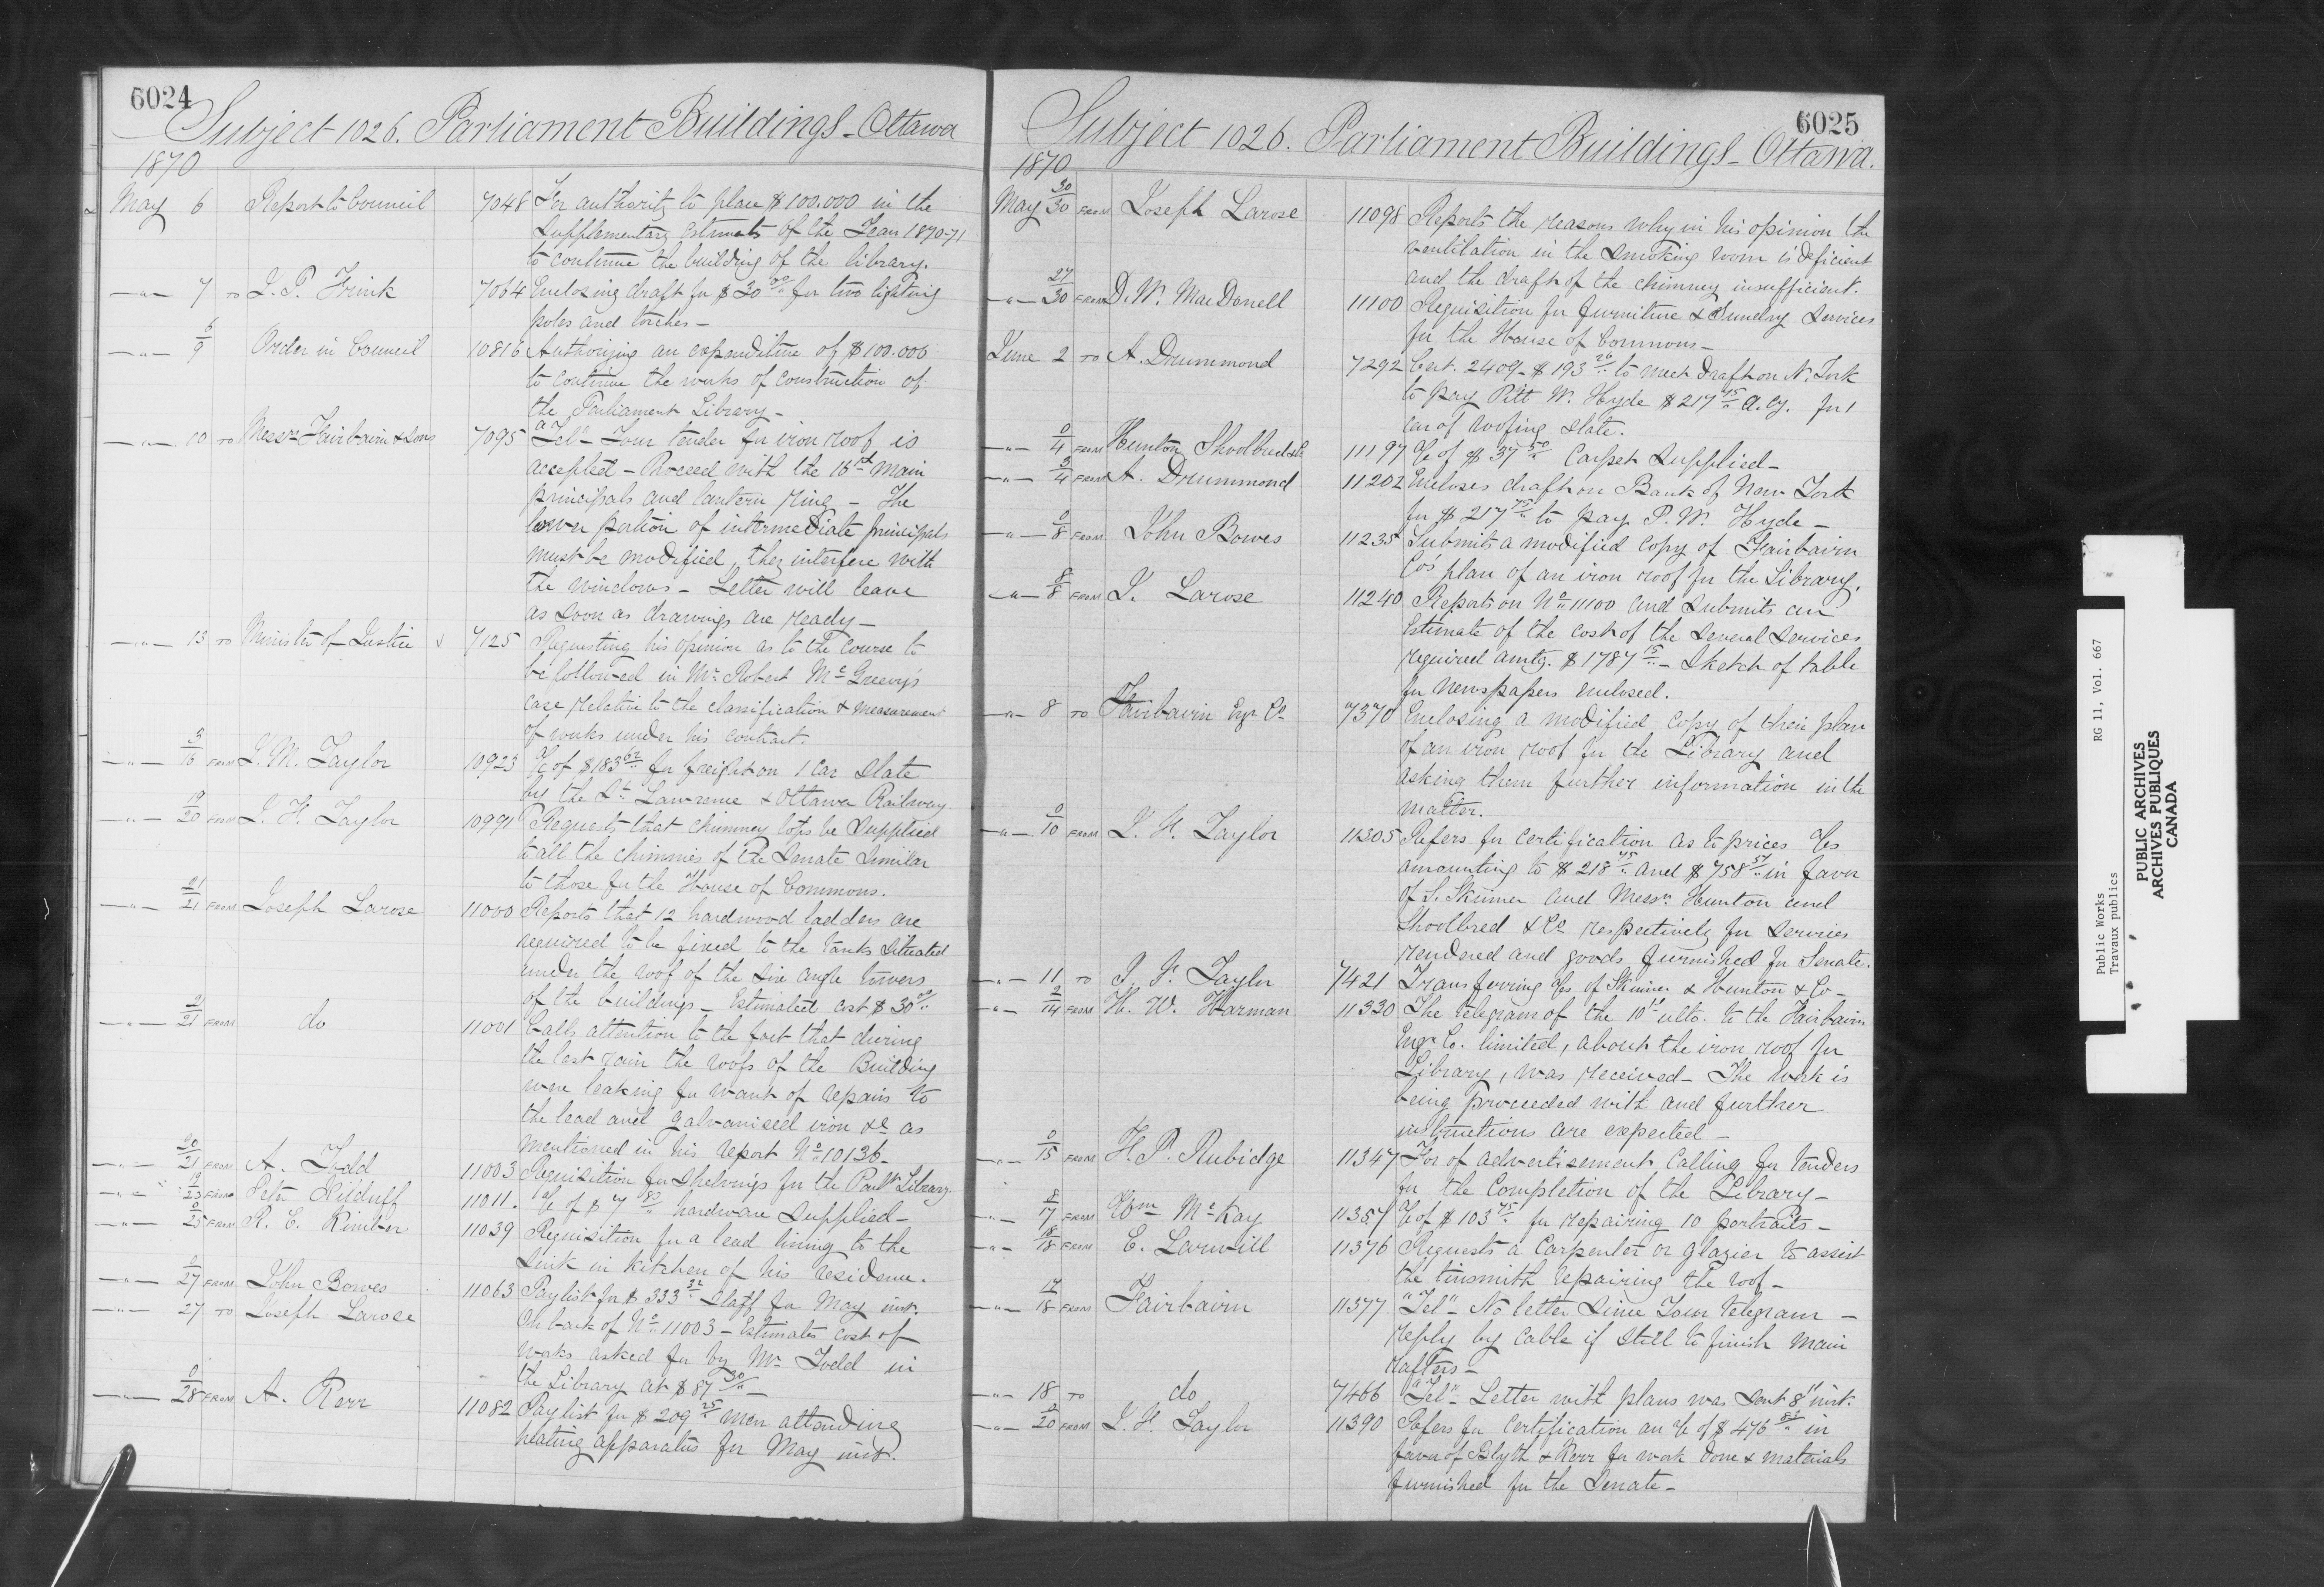 6024
Subject 1026. Parliament Buildings - Ottawa
1870
May 6 Report to Council 7048 For authority to place $100.000 in the
Supplementary Estimates of the Year 1870-71
to continue the building of the library.
-"- 7 TO 7064 Enclosing draft for $30 00/ for two lighting
poles and torches -
-"- 6/9 Order in Council 10816 Authorizing an expenditure of $100.000
to continue the works of construction of
the Parliament Library -
-"- 10 TO Messrs Fairbairn & Sons 7095 "Tel" - Your tender for iron roof is
accepted - Proceed with the 16 main
principals and lantern ring - The
lower portion of intermediate principals
must be modified, they interfere with
the windows - Letter will leave
as soon as drawings are ready -
-"- 13 TO Minister of Justice 7125 Requesting his opinion as to the course to
be followed in Mr Robert McGreevy's
case relative to the classification & measurement
of works under his contract.
-"- 3/16 FROM J. M. Taylor 10923 a/c of $183 62 for freight on 1 car slate
by the St Lawrence & Ottawa Railway
-"- 19/20 FROM J. F. Taylor 10991 Requests that chimney tops be supplied
to all the chimnies of the Senate similar
to those for the House of Commons.
-"- 21/21 FROM Joseph Larose 11000 Reports that 12 hardwood ladders are
required to be fixed to the tanks situated
under the roof of the six angle towers
of the buildings - Estimated cost $30 00/
-"- 21 FROM do 11001 Calls attention to the fact that during
the last rain the roofs of the Building
were leaking for want of repairs to
the lead and galvanised iron &c as
mentioned in his report No 10136 -
-"- 20/21 FROM A. Todd 11003 Requisition for shelvings for the Parlt Library
-"- 19/23 FROM Peter Kilduff 11011. a/c of $7 80 hardware supplied -
-"- 0/25 FROM R. E. Kimber 11039 Requisition for a lead lining to the
sink in kitchen of his residence.
-"- 27 FROM John Bowes 11063 Paylist for $333 32 Staff for May inst.
-"- 27 TO Joseph Larose On back of No 11003 - Estimates cost of
works asked for by Mr Todd in
the Library at $87 30 -
-"- 0/28 FROM A. Kerr 11082 Paylist for $209 25 men attending
heating apparatus for May inst.
6025
Subject 1026. Parliament Buildings - Ottawa.
1870
May 30/30 FROM Joseph Larose 11098 Reports the reasons why in his opinion the
ventilation in the smoking room is deficient
and the draft of the chimney insufficient.
-"- 27/30 FROM D. W. MacDonell 11100 Requisition for furniture & sundry services
for the House of Commons -
June 2 TO A. Drummond 7292 Cert. 2409 - $193 26 to meet draft on N. York
to pay Pitt W. Hyde $217 75 a.cy. for 1
car of roofing slate.
-"- 0/4 FROM Hunton Shoolbred & Co 11197 a/c of $37 50 Carpet supplied -
-"- 3/4 FROM A. Drummond 11202 Encloses draft on Bank of New York
for $217 75 to pay P. W. Hyde -
-"- 0/8 FROM John Bowes 11235 Submits a modified copy of Fairbairn
Co's plan of an iron roof for the Library.
-"- 8/8 FROM J. Larose 11240 Reports on No 11100 and submits an
Estimate of the cost of the several services
required amtg. $1787 15 - Sketch of table
for newspapers enclosed.
-"- 8 TO Fairbairn Engr Co 7370 Enclosing a modified copy of their plan
of an iron roof for the Library and
asking them further information in the
matter.
-"- 0/10 FROM J. F. Taylor 11305 Refers for certification as to prices a/cs
amounting to $218 45 and $758 57 in favor
of S. Skinner and Messrs Hunton and
Shoolbred & Co respectively for services
rendered and goods furnished for Senate.
-"- 11 TO J. F. Taylor 7421 Transferring a/cs of Skinner & Hunton & Co -
-"- 2/14 FROM H. W. Harman 11330 The telegram of the 10th ulto. to the Fairbairn
Engr Co. limited, about the iron roof for
Library, was received - The work is
being proceeded with and further
instructions are expected -
-"- 0/15 FROM F. P. Rubidge 11347 For of advertisement calling for tenders
for the Completion of the Library -
-"- 8/17 FROM Wm McKay 11357 a/c of $103 45 for repairing 10 portraits -
-"- 18/18 FROM E. Larwill 11376 Requests a Carpenter or glazier to assist
the tinsmith repairing the roof -
-"- 17/18 FROM Fairbairn 11377. "Tel" - No letter since Your telegram -
reply by cable if still to finish main
rafters -
-"- 18 TO do 7466 "Tel" - Letter with plans was sent 8th inst.
-"- 20 FROM J. F. Taylor 11390 Refers for certification an a/c of $476 83 in
favor of Blyth & Kerr for work done & materials
furnished for the Senate -
Public Works RG 11, Vol. 667
Travaux publics
PUBLIC ARCHIVES
ARCHIVES PUBLIQUES
CANADA